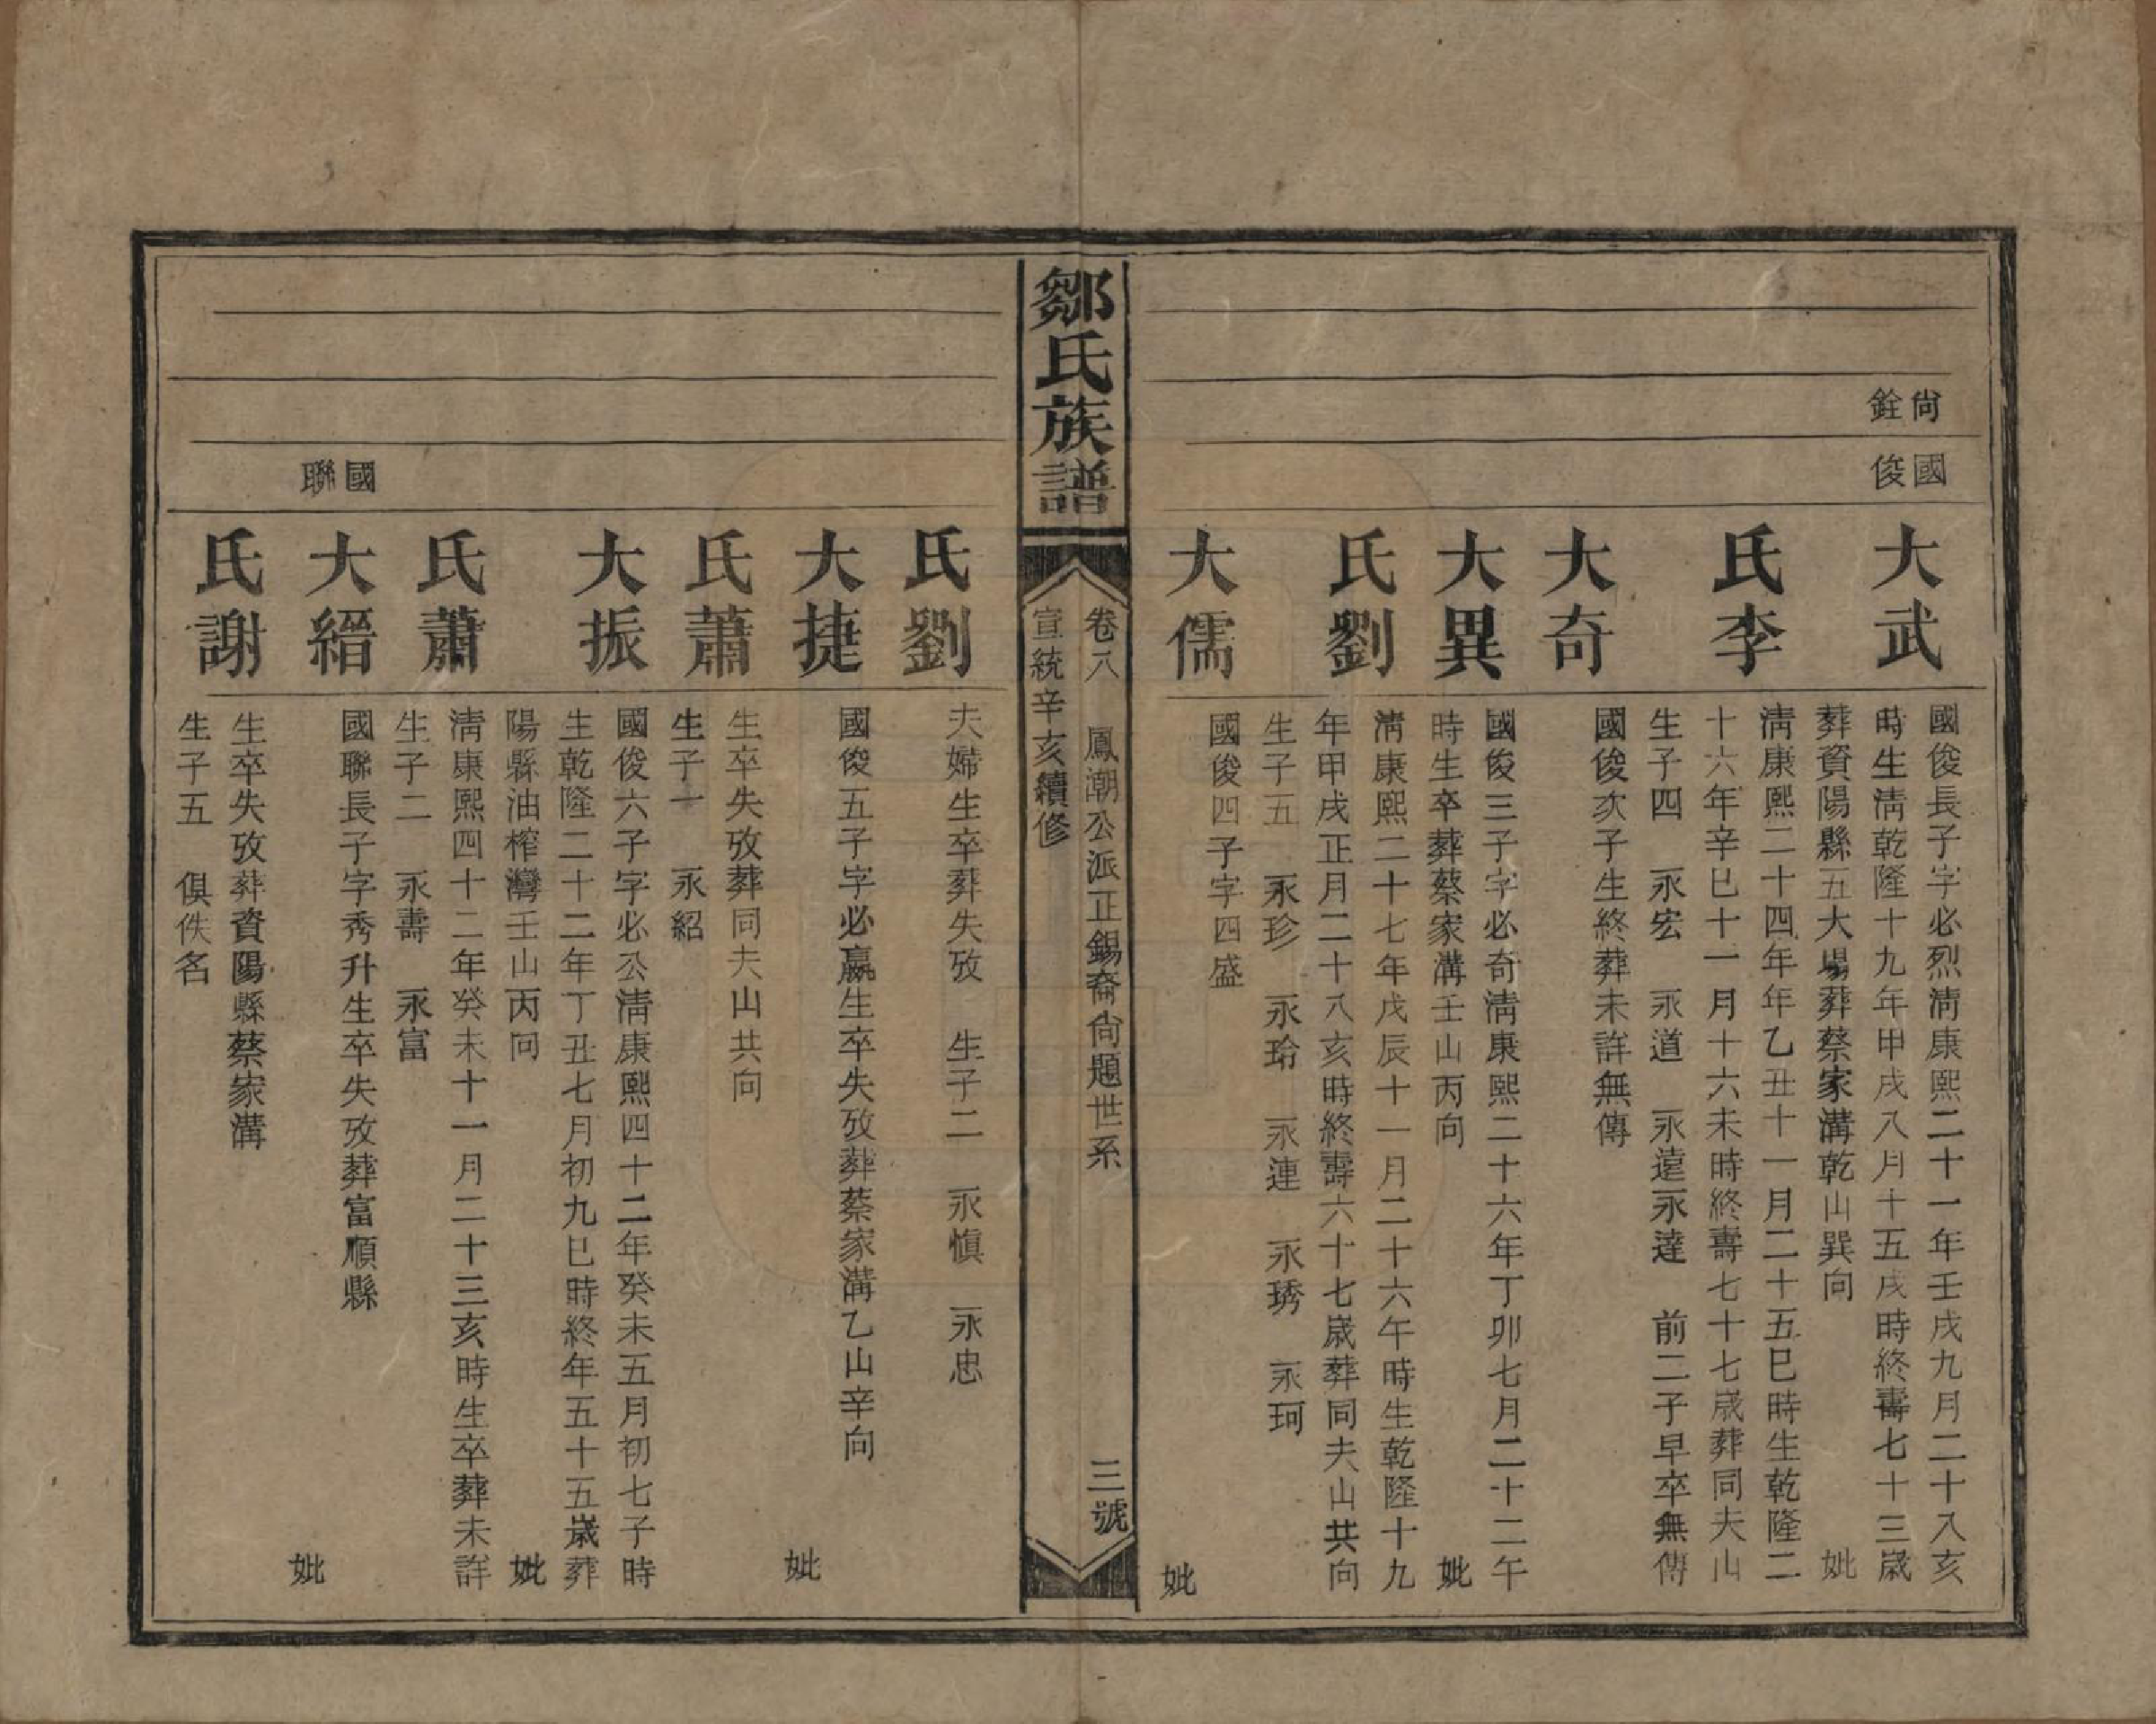 尙銓
國俊
大武
國俊長子字必烈淸康熙二十一年壬戌九月二十入亥
時生淸乾隆十九年甲戌八月十五戌時終壽七十三歲
葬資陽縣五大場葬蔡家溝乾山巽向 妣
氏李
淸康熙二十四年年乙丑十一月二十五巳時生乾隆二
十六年辛巳十一月十六未時終壽七十七歲葬同夫山
生子四 永宏 永道 永遠永達 前二子早卒無傳
大奇
國俊次子生終葬未詳無傳
大異
國俊三子字必奇淸康熙二十六年丁卯七月二十二午
時生卒葬蔡家溝壬山丙向 妣
氏劉
淸康熙二十七年戊辰十一月二十六午時生乾隆十九
年甲戌正月二十八亥時終壽六十七歲葬同夫山共向
生子五 永珍 永玲 永連 永琇 永珂
大儒
國俊四子字四盛
妣
鄒氏族譜
卷八 鳳潮公派正錫裔尙題世系 三號
宣統辛亥續修
氏劉
夫婦生卒葬失攷 生子二 永慎 永忠
大捷
國俊五子字必贏生卒失攷葬蔡家溝乙山辛向
妣
氏蕭
生卒失攷葬同夫山共向
生子一 永紹
大振
國俊六子字必公淸康熙四十二年癸未五月初七子時
生乾隆二十二年丁丑七月初九巳時終年五十五歲葬
陽縣油榨灣壬山丙向 妣
氏蕭
淸康熙四十二年癸未十一月二十三亥時生卒葬未詳
生子二 永壽 永富
國聯
大縉
國聯長子字秀升生卒失攷葬富順縣
妣
氏謝
生卒失攷葬資陽縣蔡家溝
生子五 俱佚名